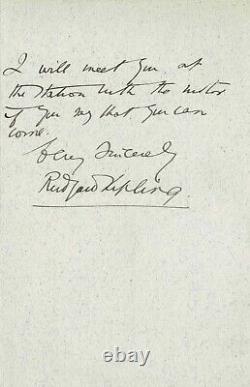 I will meet you at
the station with the motor
if you say that you can
come.
Very Sincerely
Rudyard Kipling.
ebay.com